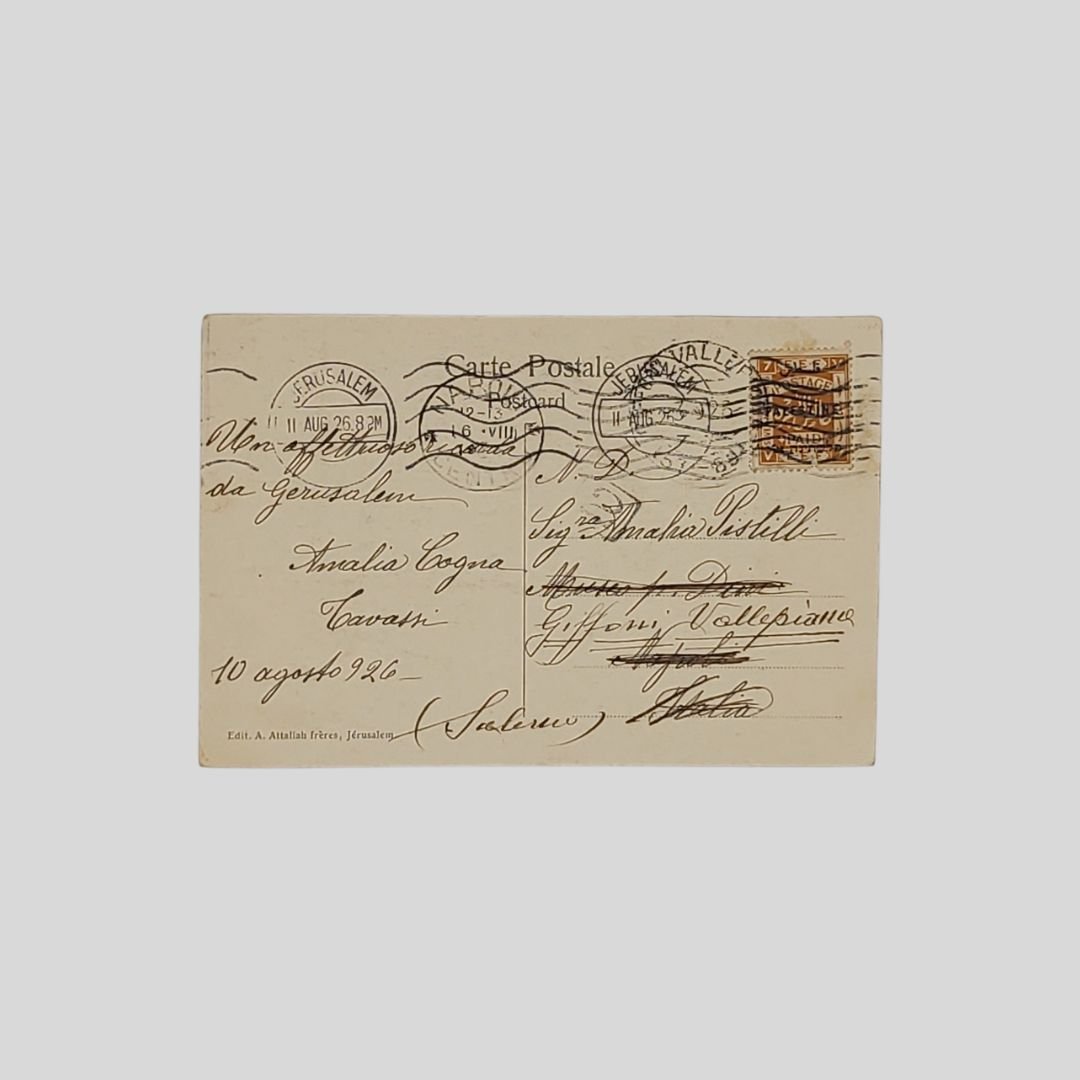 Carte Postale
Postcard
JERUSALEM
11 AUG 26.8 PM
NAPOLI
12-13
16 · VIII
CENTRO
JERUSALEM
11 AUG 26
POSTAGE
PALESTINE
PAID
Un affettuoso ricordo
da Gerusalem
Amalia Cogna
Tavassi
10 agosto 926
N. D.
Sigra Amalia Pistilli
Museo p. Dini
Giffoni Vallepiana
Napoli
Italia
(Salerno)
Edit. A. Attallah frères, Jérusalem